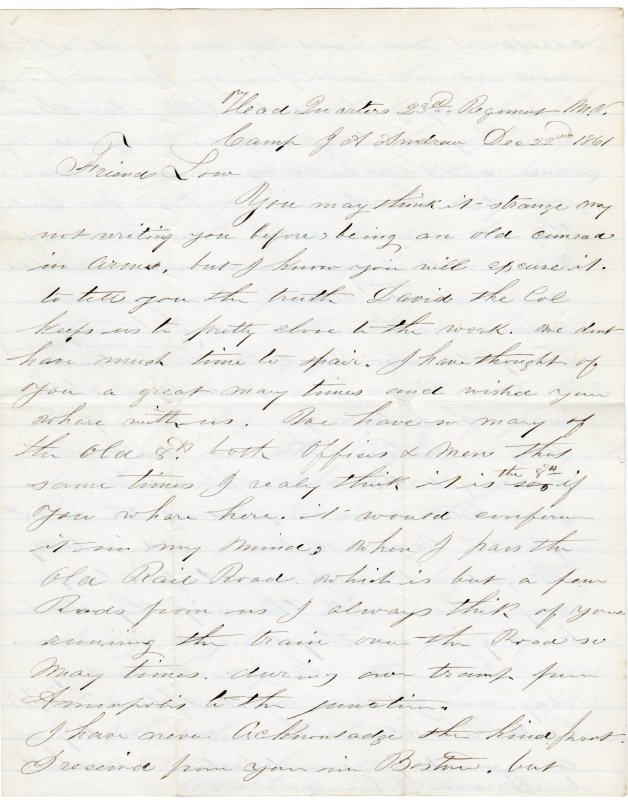 Head Quarters 23d Regiment M.V.
Camp J A Andrew Dec 22nd 1861
Friend Low
You may think it strange my
not writing you before, being an old comrad
in arms, but I know you will excuse it.
to tell you the truth David the Col
keeps us to pretty close to the work. we dont
have much time to spair. I have thought of
you a great many times and wished you
whare with us. We have so many of
the Old 8th both Officers & Men that
some times I realy think it is the 8th so if
you whare here. it would conferm
it in my mind, when I pass the
Old Rail Road which is but a few
Rods from us I always think of your
running the train over the Road so
Many times. during our tramp from
Annapolis to the junction.
I have never Acknowladge the kind
I received from you in Boston. but